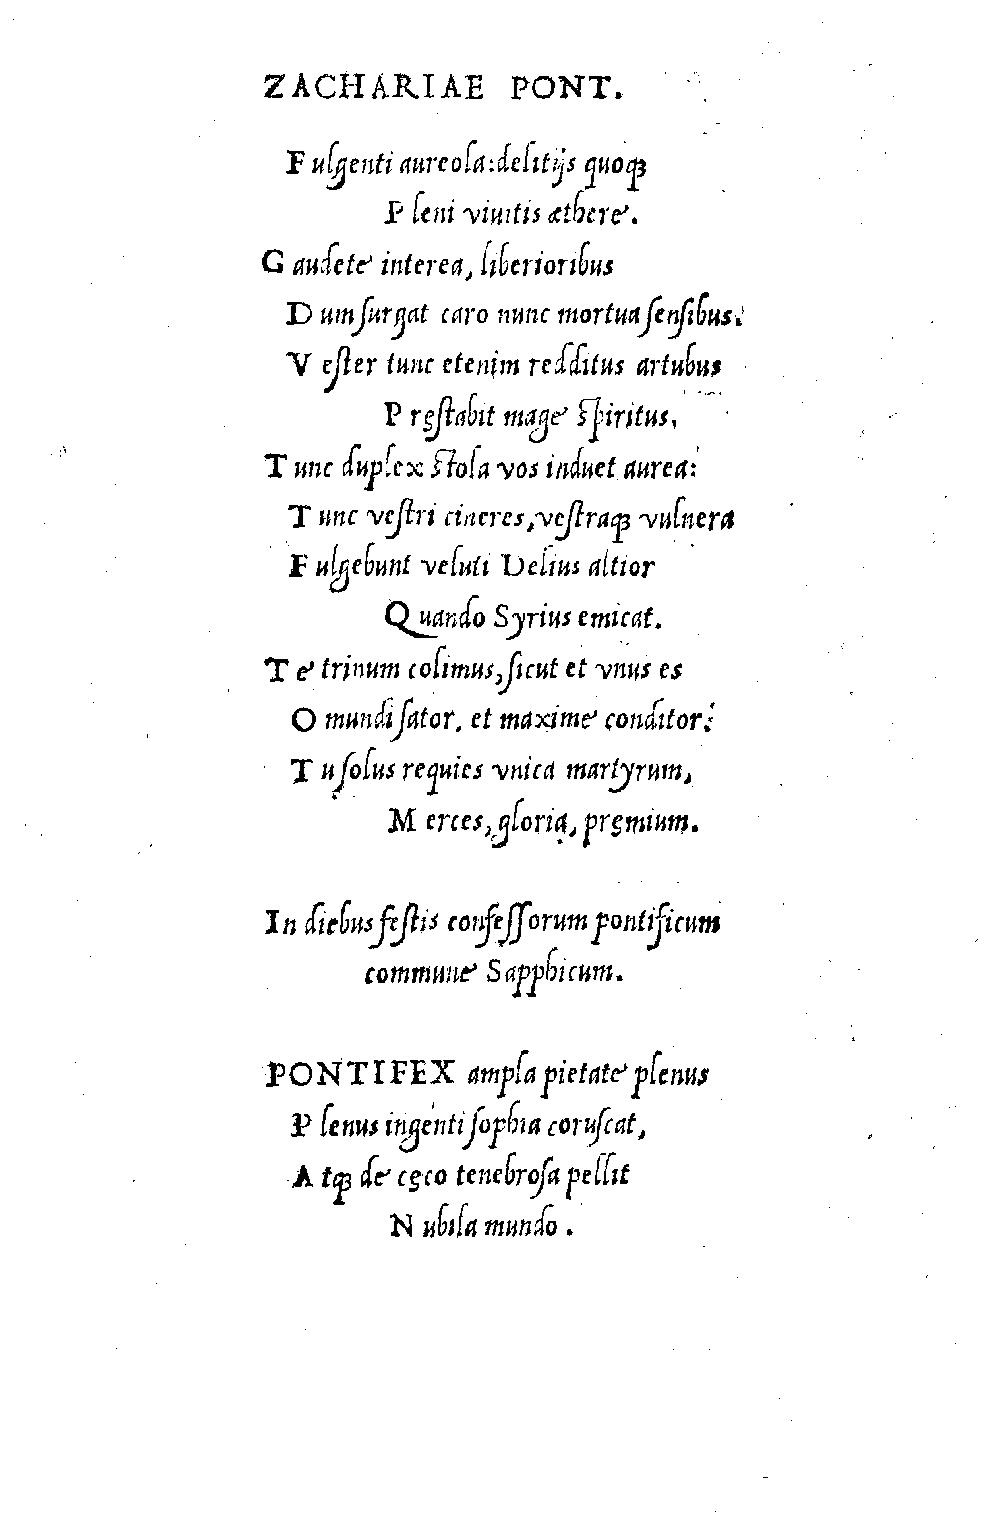 ZACHARIAE PONT.
Fulgenti aureola: delitijs quoqꝫ
Pleni viuitis æthere.
Gaudete interea, liberioribus
Dum surgat caro nunc mortua sensibus.
Vester tunc etenim redditus artubus
Pręstabit mage spiritus.
Tunc duplex stola vos induet aurea:
Tunc vestri cineres, vestraqꝫ vulnera
Fulgebunt veluti Delius altior
Quando Syrius emicat.
Te trinum colimus, sicut et vnus es
O mundi sator, et maxime conditor:
Tu solus requies vnica martyrum,
Merces, gloria, pręmium.
In diebus festis confessorum pontificum
commune Sapphicum.
PONTIFEX ampla pietate plenus
Plenus ingenti sophia coruscat,
Atqꝫ de cęco tenebrosa pellit
Nubila mundo.